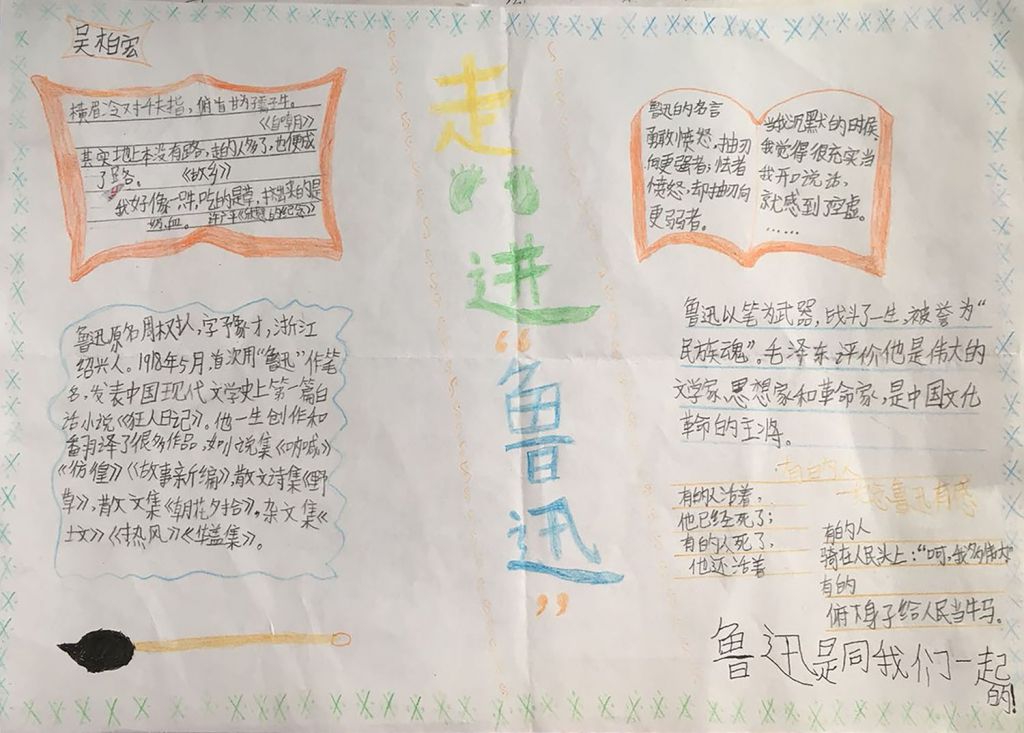 吴柏宏
横眉冷对千夫指，俯首甘为孺子牛。
《自嘲》
其实地上本没有路，走的人多了，也便成
了路。 《故乡》
我好像一只牛，吃的是草，挤出来的是
奶、血。 许广平《欣慰的纪念》
鲁迅原名周树人，字豫才，浙江
绍兴人。1918年5月，首次用“鲁迅”作笔
名，发表中国现代文学史上第一篇白
话小说《狂人日记》。他一生创作和
翻译了很多作品，如小说集《呐喊》
《彷徨》《故事新编》，散文诗集《野
草》，散文文集《朝花夕拾》。杂文集《
坟》《热风》《华盖集》。
走
进
“
鲁
迅
”
鲁迅的名言
勇敢愤怒，抽刃
向更强者；怯者
愤怒，却抽刃向
更弱者。
当我沉默的时候
我觉得很充实当
我开口说话，
就感到了空虚。
……
鲁迅以笔为武器，战斗了一生，被誉为“
民族魂”。毛泽东评价他是伟大的
文学家、思想家和革命家，是中国文化
革命的主将。
有的人
—纪念鲁迅有感
有的人活着，
他已经死了；
有的人死了，
他还活着
有的人
骑在人民头上：“呵，我多伟大”
有的
俯下身子给人民当牛马。
鲁迅是同我们一起
的！